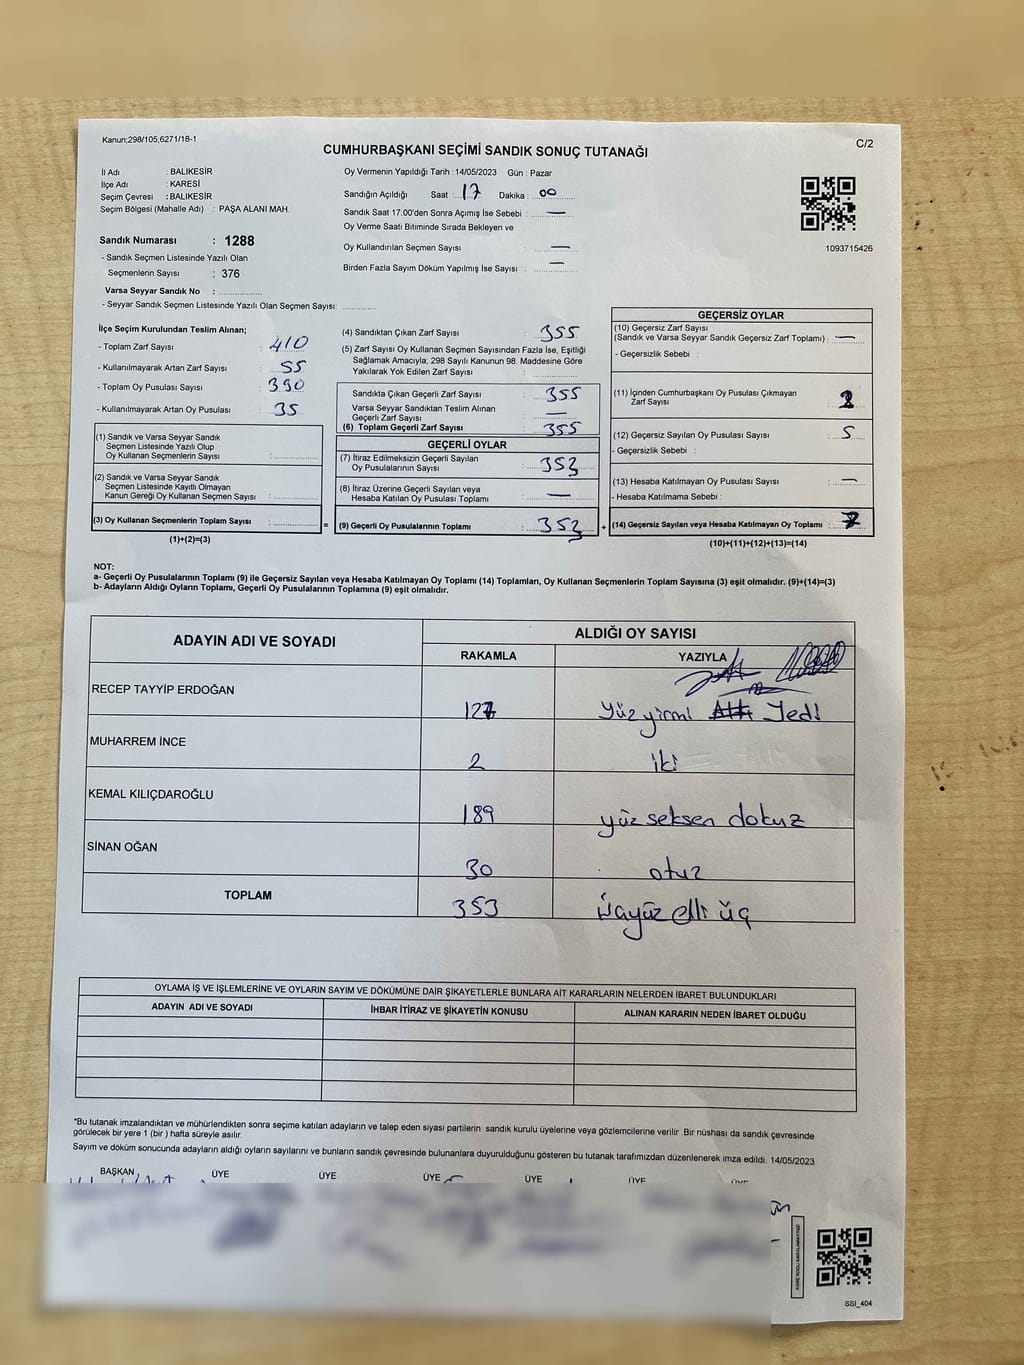 Kanun;298/105;6271/18-1
C/2
CUMHURBAŞKANI SEÇİMİ SANDIK SONUÇ TUTANAĞI
İl Adı : BALIKESİR
İlçe Adı : KARESİ
Seçim Çevresi : BALIKESİR
Seçim Bölgesi (Mahalle Adı) : PAŞA ALANI MAH.
Sandık Numarası : 1288
- Sandık Seçmen Listesinde Yazılı Olan
Seçmenlerin Sayısı : 376
Varsa Seyyar Sandık No :
- Seyyar Sandık Seçmen Listesinde Yazılı Olan Seçmen Sayısı:
Oy Vermenin Yapıldığı Tarih : 14/05/2023 Gün : Pazar
Sandığın Açıldığı Saat : 17 Dakika : 00
Sandık Saat 17:00'den Sonra Açımış İse Sebebi : —
Oy Verme Saati Bitiminde Sırada Bekleyen ve
Oy Kullandırılan Seçmen Sayısı : —
Birden Fazla Sayım Döküm Yapılmış İse Sayısı : —
1093715426
İlçe Seçim Kurulundan Teslim Alınan;
- Toplam Zarf Sayısı : 410
- Kullanılmayarak Artan Zarf Sayısı : 55
- Toplam Oy Pusulası Sayısı : 390
- Kullanılmayarak Artan Oy Pusulası : 35
(1) Sandık ve Varsa Seyyar Sandık
Seçmen Listesinde Yazılı Olup
Oy Kullanan Seçmenlerin Sayısı :
(2) Sandık ve Varsa Seyyar Sandık
Seçmen Listesinde Kayıtlı Olmayan
Kanun Gereği Oy Kullanan Seçmen Sayısı :
(3) Oy Kullanan Seçmenlerin Toplam Sayısı :
=
(1)+(2)=(3)
(4) Sandıktan Çıkan Zarf Sayısı : 355
(5) Zarf Sayısı Oy Kullanan Seçmen Sayısından Fazla İse, Eşitliği
Sağlamak Amacıyla; 298 Sayılı Kanunun 98. Maddesine Göre
Yakılarak Yok Edilen Zarf Sayısı :
Sandıkta Çıkan Geçerli Zarf Sayısı : 355
Varsa Seyyar Sandıktan Teslim Alınan
Geçerli Zarf Sayısı : —
(6) Toplam Geçerli Zarf Sayısı : 355
GEÇERLİ OYLAR
(7) İtiraz Edilmeksizin Geçerli Sayılan
Oy Pusulalarının Sayısı : 353
(8) İtiraz Üzerine Geçerli Sayılan veya
Hesaba Katılan Oy Pusulası Toplamı : —
(9) Geçerli Oy Pusulalarının Toplamı : 353
+
GEÇERSİZ OYLAR
(10) Geçersiz Zarf Sayısı
(Sandık ve Varsa Seyyar Sandık Geçersiz Zarf Toplamı) : —
- Geçersizlik Sebebi :
(11) İçinden Cumhurbaşkanı Oy Pusulası Çıkmayan
Zarf Sayısı :
(12) Geçersiz Sayılan Oy Pusulası Sayısı : 5
- Geçersizlik Sebebi :
(13) Hesaba Katılmayan Oy Pusulası Sayısı : —
- Hesaba Katılmama Sebebi :
(14) Geçersiz Sayılan veya Hesaba Katılmayan Oy Toplamı :
(10)+(11)+(12)+(13)=(14)
NOT:
a- Geçerli Oy Pusulalarının Toplamı (9) ile Geçersiz Sayılan veya Hesaba Katılmayan Oy Toplamı (14) Toplamları, Oy Kullanan Seçmenlerin Toplam Sayısına (3) eşit olmalıdır. (9)+(14)=(3)
b- Adayların Aldığı Oyların Toplamı, Geçerli Oy Pusulalarının Toplamına (9) eşit olmalıdır.
ADAYIN ADI VE SOYADI
ALDIĞI OY SAYISI
RAKAMLA YAZIYLA
RECEP TAYYİP ERDOĞAN 127 yüz yirmi Altı Yedi
MUHARREM İNCE 2 iki
KEMAL KILIÇDAROĞLU 189 yüz seksen dokuz
SİNAN OĞAN 30 otuz
TOPLAM 353 üçyüz elli üç
OYLAMA İŞ VE IŞLEMLERİNE VE OYLARIN SAYIM VE DÖKÜMÜNE DAİR ŞİKAYETLERLE BUNLARA AİT KARARLARIN NELERDEN İBARET BULUNDUKLARI
ADAYIN ADI VE SOYADI İHBAR İTİRAZ VE ŞİKAYETİN KONUSU ALINAN KARARIN NEDEN İBARET OLDUĞU
*Bu tutanak imzalandıktan ve mühürlendikten sonra seçime katılan adayların ve talep eden siyasi partilerin sandık kurulu üyelerine veya gözlemcilerine verilir .Bir nüshası da sandık çevresinde
görülecek bir yere 1 (bir ) hafta süreyle asılır.
Sayım ve döküm sonucunda adayların aldığı oyların sayılarını ve bunların sandık çevresinde bulunanlara duyurulduğunu gösteren bu tutanak tarafımızdan düzenlenerek imza edildi. 14/05/2023
BAŞKAN ÜYE ÜYE ÜYE ÜYE ÜYE ÜYE
SSI_404